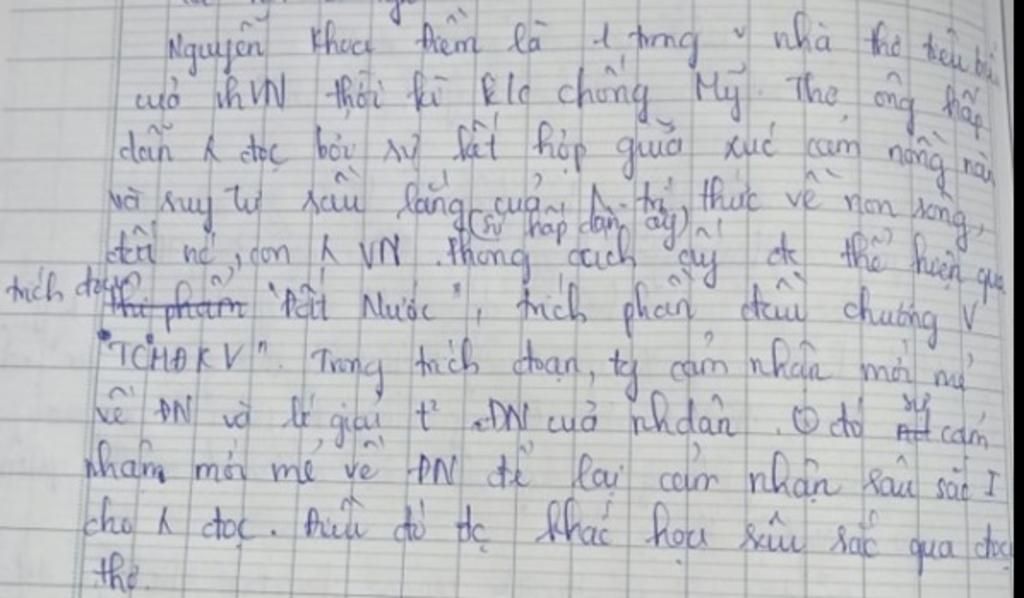 Nguyễn Khoa Điềm là 1 trong ~ nhà thơ tiêu bi
cuả thVN thời kì k/c chống Mỹ. Thơ ông hấp
dẫn ng đọc bởi sự kết hợp giữa xúc cảm nồng nàn
và suy tư sâu lắng của ng trí thức về non sông,
(sự hấp dẫn ấy)
đất nc, con ng VN. Phong cách ấy đc thể hiện qua
trích đoạn thi phẩm "Đất Nước", trích phần đầu chương V
"TCMĐKV". Trong trích đoạn, tg cảm nhận mới mẻ
về ĐN và lí giải t² ĐN cuả nhdân. ① đó sự cảm
nhậm mới mẻ về ĐN để lại cảm nhận sâu sắc I
cho ng đọc. Điều đó đc khắc họa sâu sắc qua đoạ
thơ.